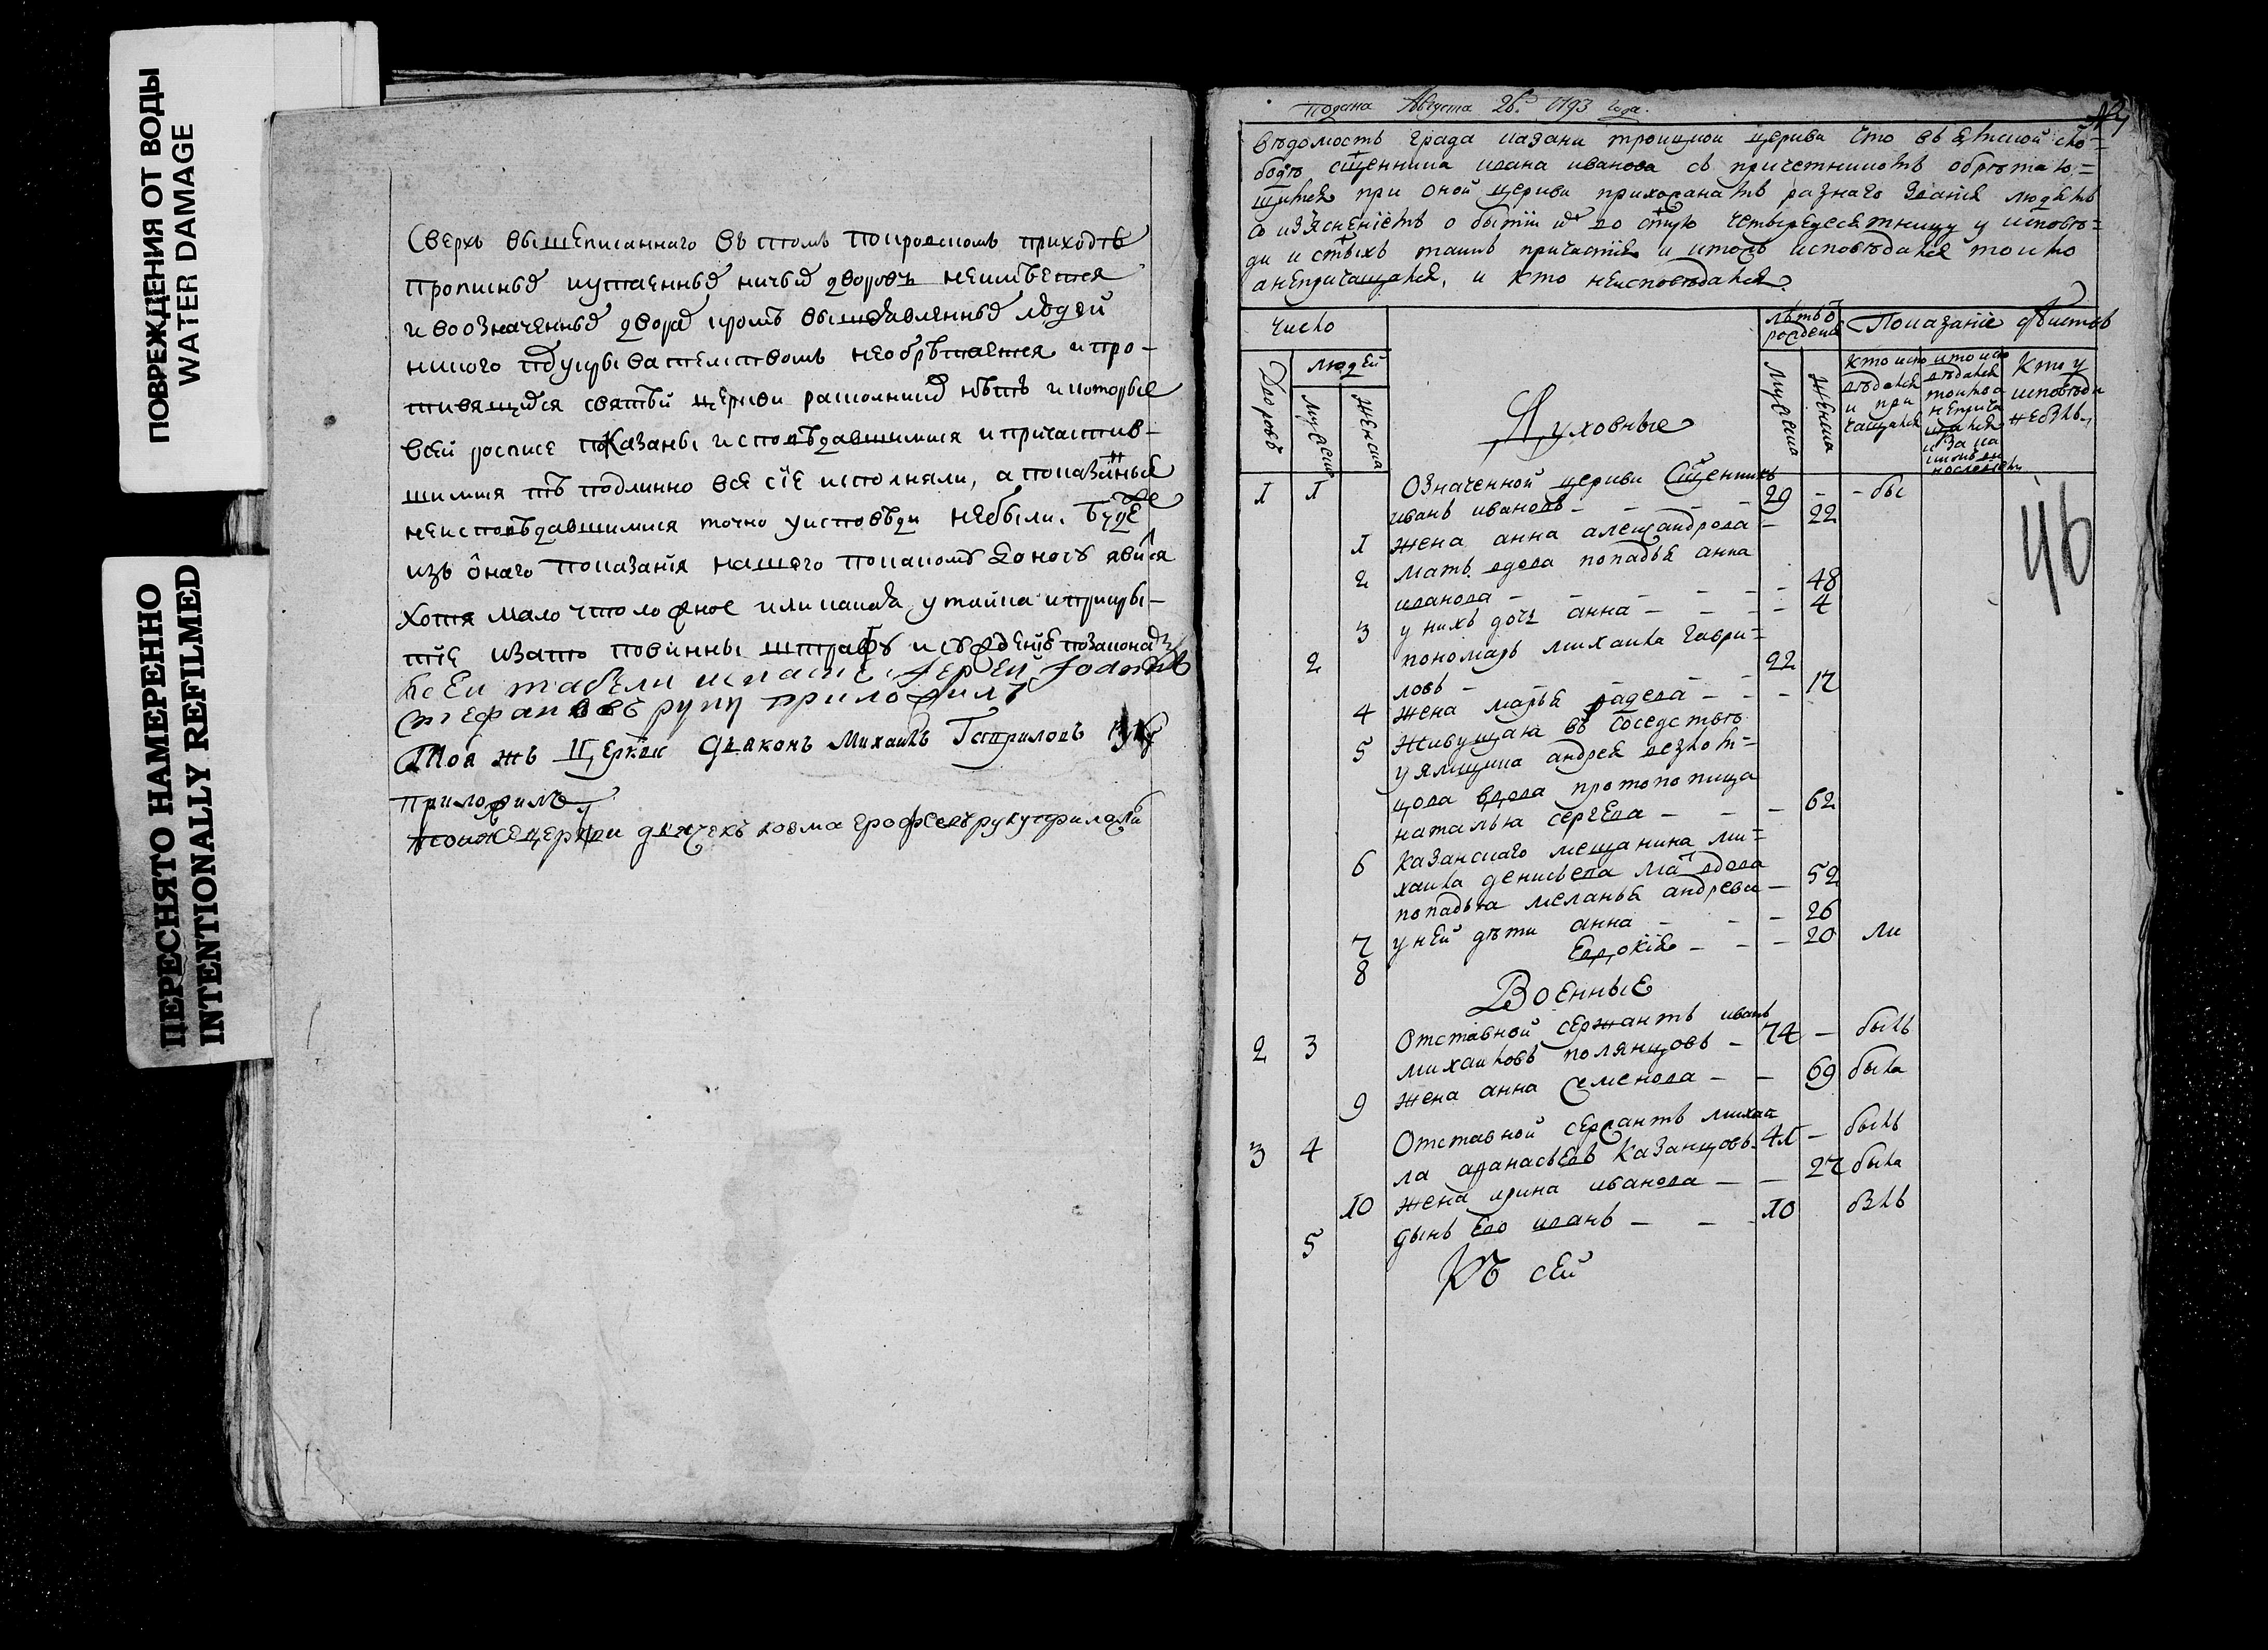 ПОВРЕЖДЕНИЯ ОТ ВОДЫ
WATER DAMAGE
ПЕРЕСНЯТО НАМЕРЕННО
INTENTIONALLY REFILMED
Сверхъ вышеписаннаго въ томъ Покровскомъ приходѣ
прописныѯ и утаенныѯ ничьиѯ дворовъ неимѣется
и во означенныѯ дворѣ кромѣ выявленныѯ людей
никого подукрывателствомъ необрѣтается и про-
тивящиѯся святѣй церкви расколникѯ нѣтъ и которые
всей росписе показаны исповѣдавшимися и причастив-
шимися тѣ подлинно всѧ сїе исполняли, а показанные
неисповѣдавшимися точно у исповѣди небыли. Буде
изъ онаго показанія нашего покакому доносу явится
хотя мало что ложное или какая утайка и прикры-
тїе и за то повинны штрафу и сужденїю позакона
Ксеи табели
Стефановъ руку приложилъ
Тоя жъ Церкви Дьяконъ Михаилъ Гавриловъ руку
приложилъ
тоижеЦеркви дьячекъ козма ерофѣевъ руку приложилъ
Подана Августа 26. 1793 года.
Вѣдомость града казани троицкои церкви что въ ямской сло=
бодѣ сщенника ивана иванова съ причетникомъ обрѣтаю=
щихся при оной церкви прихожанахъ разнаго званїя людяхъ
со изъясненїемъ о бытїи ихъ во стую четыредесятницу у исповѣ=
ди и стыхъ таинъ причастїя и ктожъ исповѣдался токмо
а непричащался, и кто неисповѣдался.
Число
лѣтъ ѿ рожденїя
Показанїе дѣиствъ
Дворовъ
людей
Мужеска
Женска
Духовные
Мужеска
Женска
Кто исповѣдался и причащался
Кто у исповѣди небылъ
1 1 Означенной церкви Сщенникъ
иванъ ивановъ – – – 29 – – бы
1 жена анна александрова – 22
2 Мать вдова попадья анна
иванова – – – – – 48
3 у нихъ дочь анна – – – – 4
2 пономарь михаила гаври=
ловъ – – – – 22
4 жена марья – – – 17
5 Живущая въ соседствѣ
у ямщика андрея
вдова протопопица
наталья сергеева – – – 62
6 Казанскаго мещанина ми=
хаила денисьева мать вдова
попадья меланья андреева – 52
7 у ней дѣти анна – – – 26
8 Евдокїя – – – 20 ли
Военные
2 3 Отставной сержантъ иванъ
михаиловъ полянцовъ – 74 – былъ
9 жена анна Семенова – – 69 была
3 4 Отставной сержантъ михаи
ла аѳанасьевъ Казанцовъ. 41 – былъ
10 жена ирина иванова – – 27 была
5 сынъ Ево иванъ – – 10 былъ
Къ сей
46